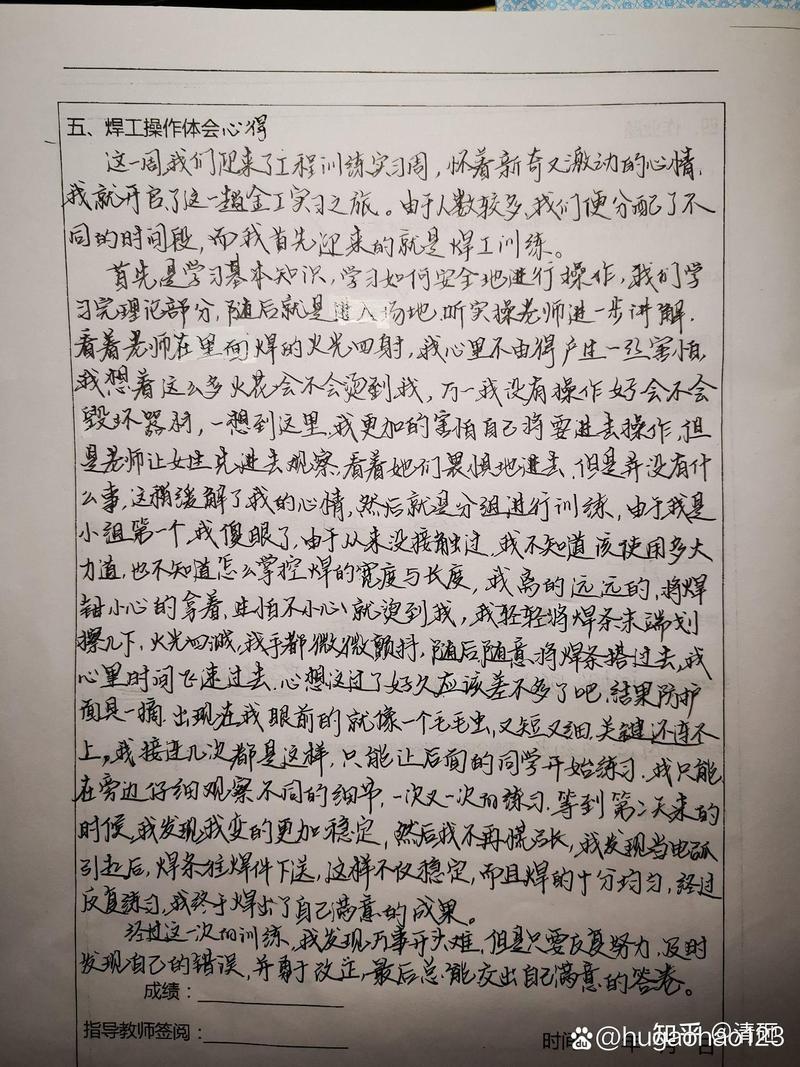 五、焊工操作体会心得
这一周,我们迎来了工程训练实习周,怀着新奇又激动的心情,
我就开启了这一趟金工实习之旅。由于人数较多,我们便分配了不
同的时间段,而我首先迎来的就是焊工训练。
首先是学习基本知识,学习如何安全地进行操作,我们学
习完理论部分,随后就是进入场地,听实操老师进一步讲解.
看着老师在里面焊的火光四射,我心里不由得产生一丝害怕,
我想着这么多火花会不会烫到我,万一我没有操作好会不会
毁坏器材,一想到这里,我更加的害怕自己将要进去操作,但
是老师让女生先进去观察,看着她们畏惧地进去,但是并没有什
么事,这稍缓解了我的心情,然后就是分组进行训练,由于我是
小组第一个,我傻眼了,由于从来没接触过,我不知道该使用多大
力道,也不知道怎么掌控焊的宽度与长度,我离的远远的,将焊
钳小心的拿着,生怕不小心就烫到我,我轻轻将焊条末端划
擦几下,火光四溅,我手都微微颤抖,随后,随意将焊条搭过去,我
心里时间飞速过去,心想这过了好久应该差不多了吧,结果防护
面具一摘,出现在我眼前的就像一个毛毛虫,又短又细,关键还连不
上,我接连几次都是这样,只能让后面的同学开始练习,我只能
在旁边仔细观察不同的细节,一次又一次的练习,等到第二天来的
时候,我发现我变的更加稳定,然后我不再慌张,我发现当电弧
引起后,焊条往焊件下送,这样不仅稳定,而且焊的十分均匀,经过
反复练习,我终于焊出了自己满意的成果。
经过这一次的训练,我发现万事开头难,但是只要反复努力,及时
发现自己的错误,并勇于改正,最后总能交出自己满意的答卷。
成绩:
指导教师签阅:
时间 年 月 日
知乎 @清晒
@hugaohao123